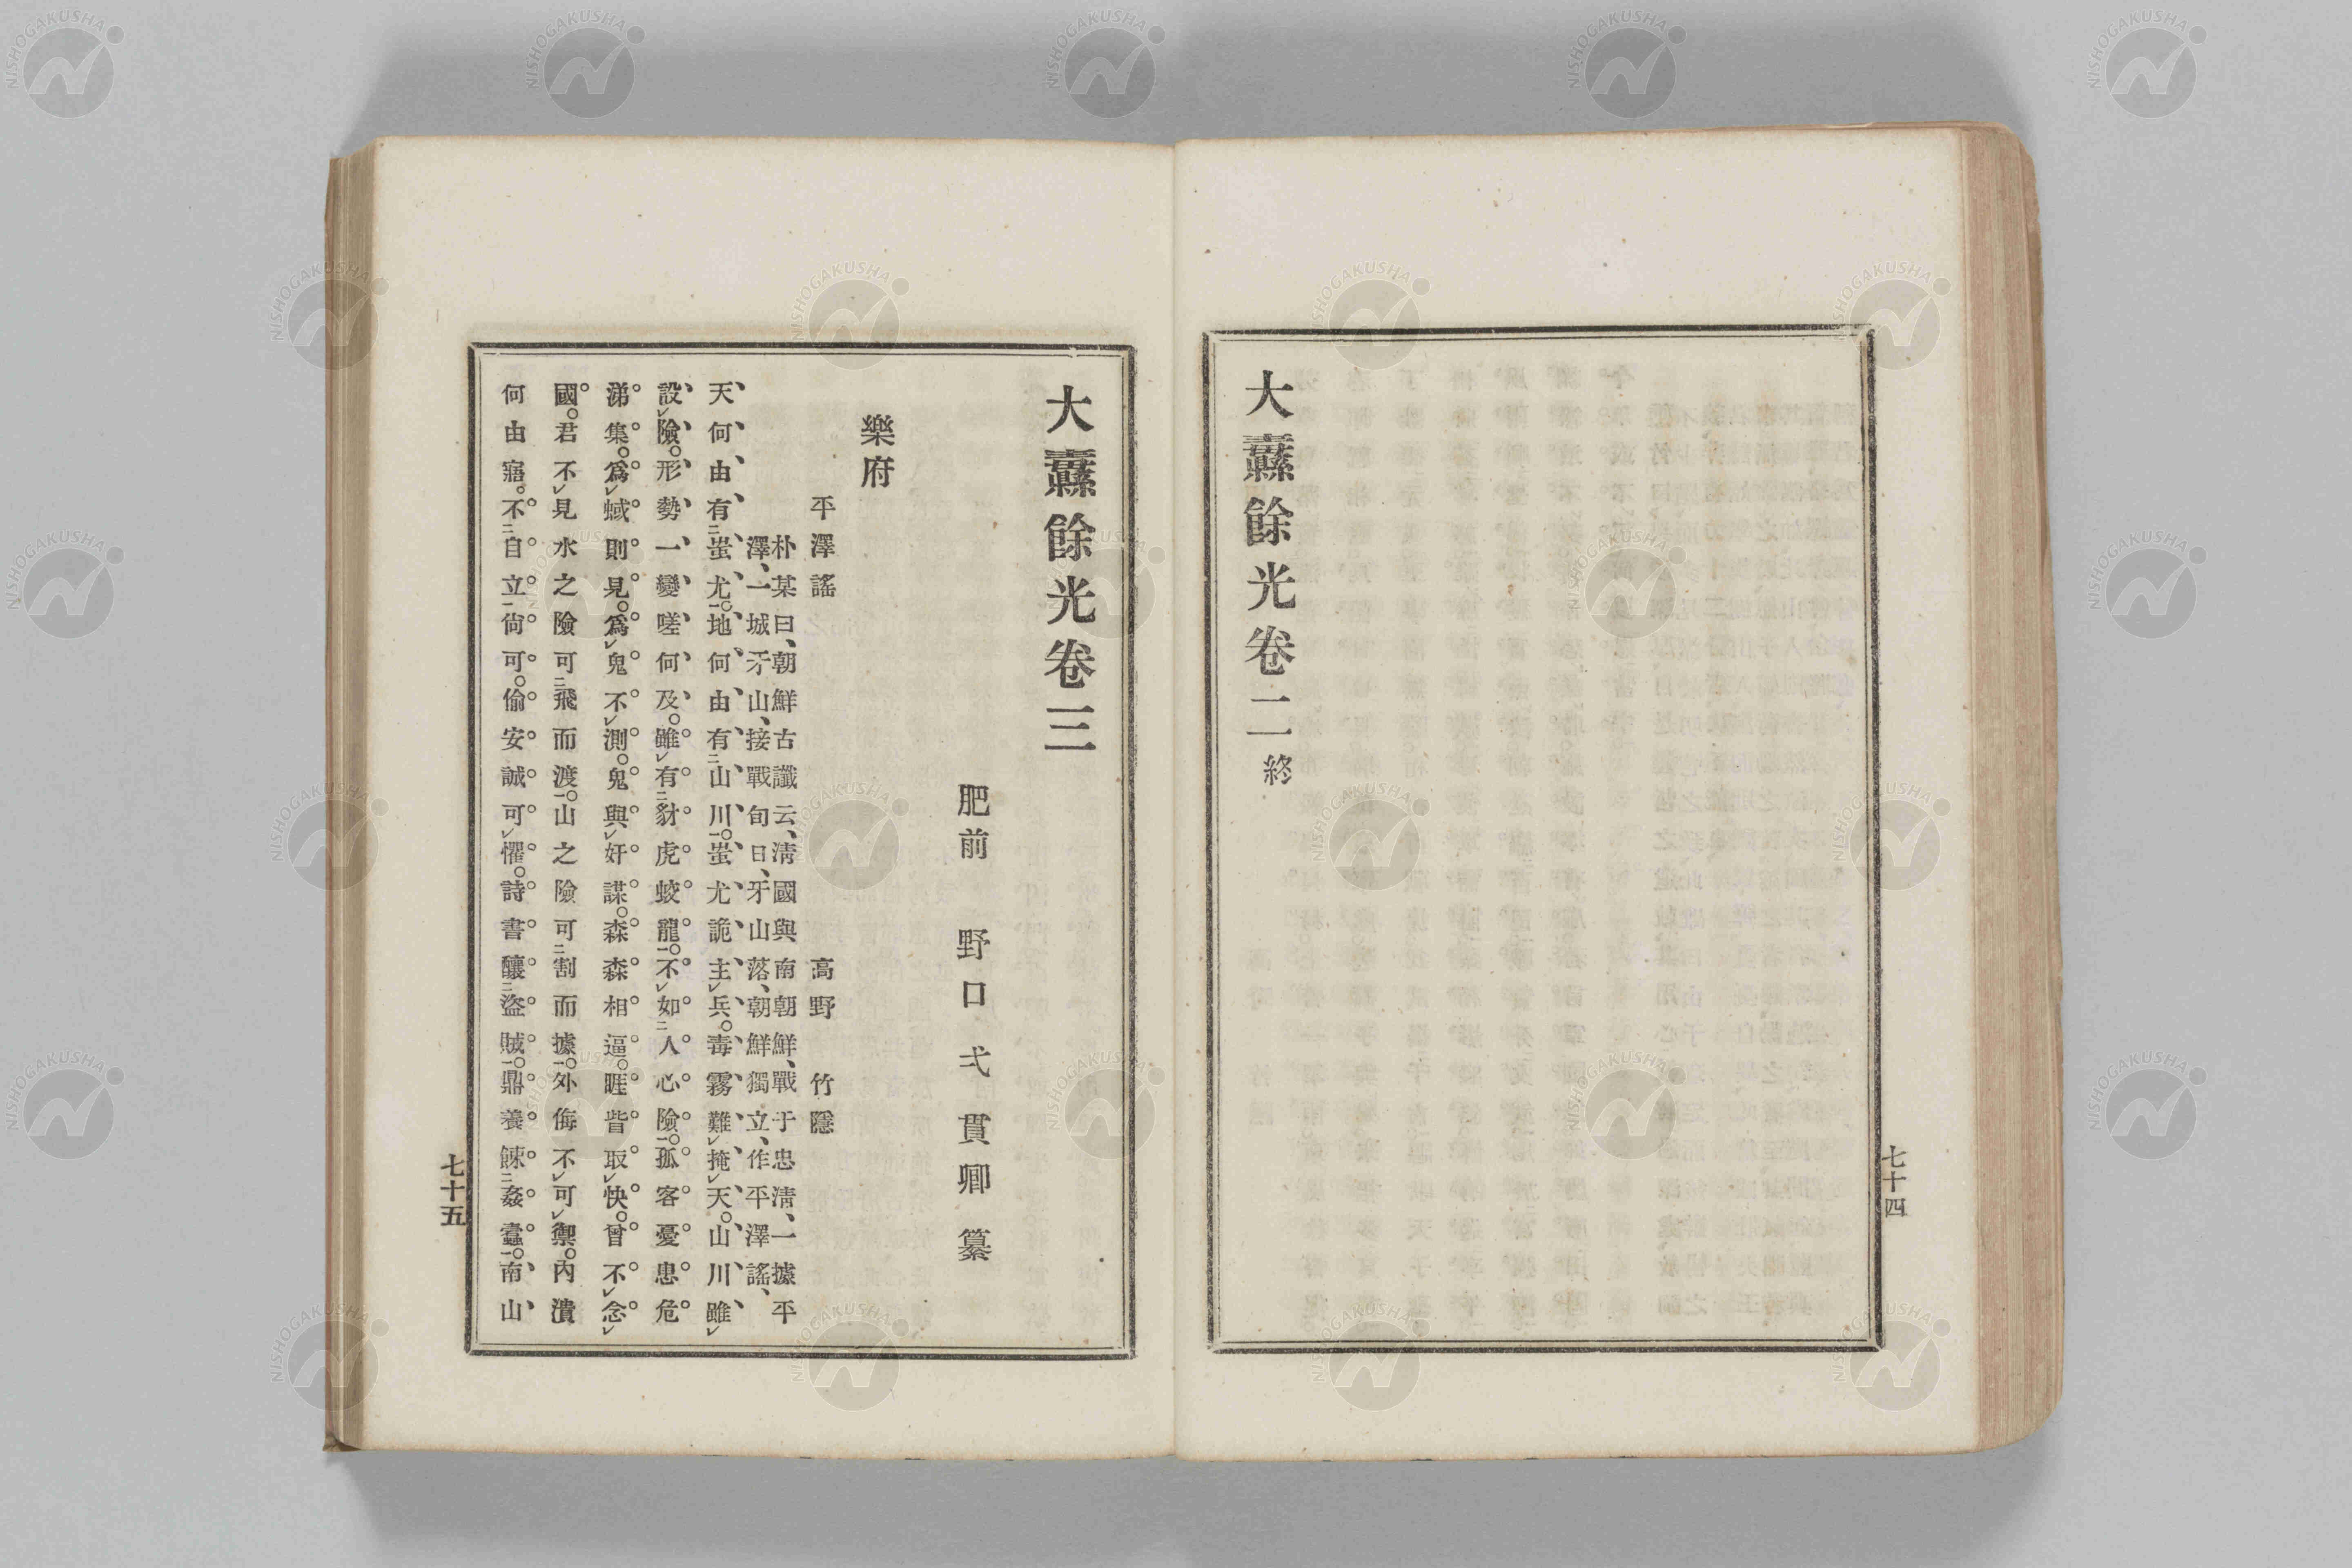 大纛餘光卷二終
七十四
大纛餘光卷三
肥前 野口弌貫卿纂
樂府
平澤謠 高野竹隱
朴某曰、朝鮮古讖云、淸國與南朝鮮、戰于忠淸、一據平
澤、一城牙山、接戰旬日、牙山落、朝鮮獨立、作平澤謠、
天何由有二蚩尤一。地何由有二山川一。蚩尤詭主レ兵。毒霧難レ掩レ天。山川雖レ
設レ險。形勢一變嗟何及。雖レ有二豺虎蛟龍一。不レ如二人心險一。孤客憂思危
涕集。爲レ蜮則見。爲レ鬼不レ測。鬼與レ奸謀。森森相逼。睚眥取レ快。曾不レ念レ
國。君不レ見水之險可二飛而渡一。山之險可二割而據一。外侮不レ可レ禦。內潰
何由寤。不二自立一尙可。偷安誠可レ懼。詩書釀二盜賊一。鼎養餗二姦蠹一。南山
七十五
NISHOGAKUSHA